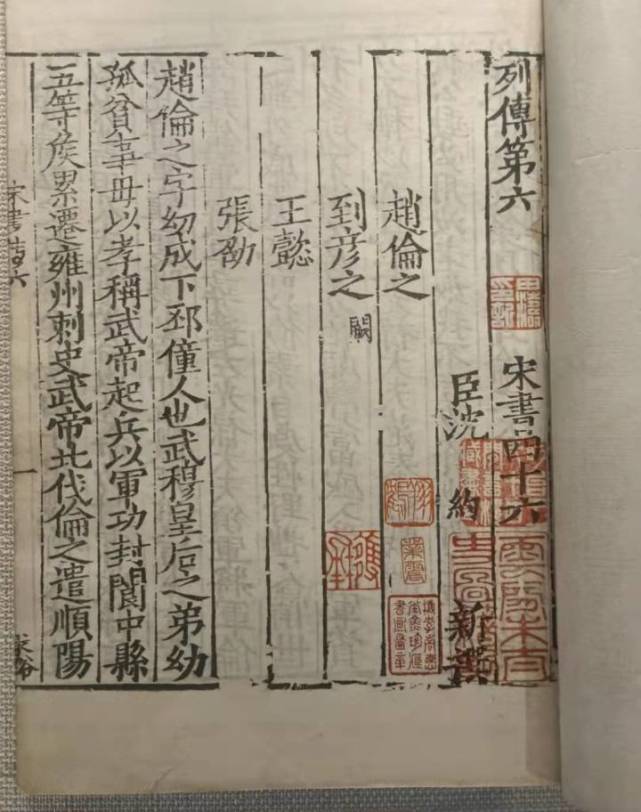 列傳第六 宋書四十六
臣沈約新撰
趙倫之
到彦之 闕
王懿
張劭
趙倫之字幼成下邳僮人也武穆皇后之弟幼
孤貧事母以孝稱武帝起兵以軍功封閬中縣
五等侯累遷雍州刺史武帝北伐倫之遣順陽
宋書
六
一